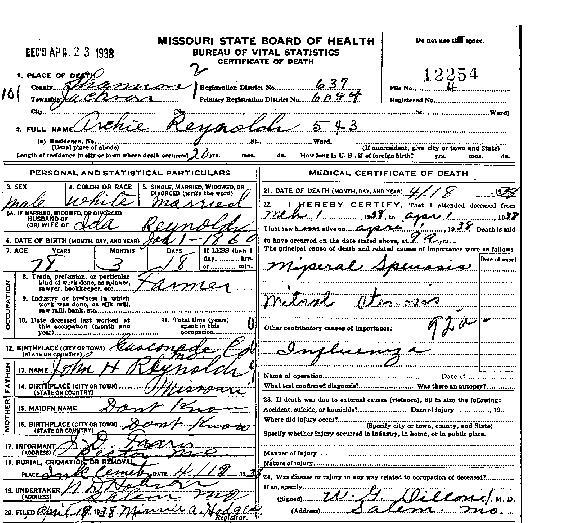 MISSOURI STATE BOARD OF HEALTH
BUREAU OF VITAL STATISTICS
CERTIFICATE OF DEATH
REC'D APR 23 1938
Do not use this space.
12254
1. PLACE OF DEATH
County Shannon Registration District No. 637 File No.
Township Jackson Primary Registration District No. 6044 Registered No.
101
City (No. St. Ward)
2. FULL NAME Archie Reynolds 543
(a) Residence, No. St. Ward.
(Usual place of abode) (If nonresident, give city or town and State)
Length of residence in city or town where death occurred 20 yrs. mos. ds. How long in U. S., if of foreign birth? yrs. mos. ds.
PERSONAL AND STATISTICAL PARTICULARS
3. SEX
male
4. COLOR OR RACE
White
5. SINGLE, MARRIED, WIDOWED, OR
DIVORCED (write the word)
married
5A. IF MARRIED, WIDOWED, OR DIVORCED
HUSBAND OF
(OR) WIFE OF Ida Reynolds
6. DATE OF BIRTH (MONTH, DAY, AND YEAR) Jan 1 - 1860
7. AGE YEARS MONTHS DAYS If LESS than 1
78 3 18 day, hrs.
or min.
OCCUPATION
8. Trade, profession, or particular
kind of work done, as spinner,
sawyer, bookkeeper, etc. Farmer
9. Industry or business in which
work was done, as silk mill,
saw mill, bank, etc.
10. Date deceased last worked at
this occupation (month and
year)
11. Total time (years)
spent in this
occupation
12. BIRTHPLACE (CITY OR TOWN) Gasconade Co
(STATE OR COUNTRY) Mo
FATHER
13. NAME John H Reynolds
14. BIRTHPLACE (CITY OR TOWN)
(STATE OR COUNTRY) Missouri
MOTHER
15. MAIDEN NAME Dont Know
16. BIRTHPLACE (CITY OR TOWN) Dont Know
(STATE OR COUNTRY)
17. INFORMANT S. D.
(ADDRESS) Mo
18. BURIAL, CREMATION, OR REMOVAL
PLACE Cemet DATE 4/18 1938
19. UNDERTAKER
(ADDRESS) Salem Mo
20. FILED April 18 1938
Registrar.
MEDICAL CERTIFICATE OF DEATH
21. DATE OF DEATH (MONTH, DAY, AND YEAR) 4/18 1938
22. I HEREBY CERTIFY, That I attended deceased from
Mch 1 1938, to apr 1 1938
I last saw h alive on apr 1938 Death is said
to have occurred on the date stated above, at
The principal cause of death and related causes of importance were as follows:
Date of onset
Mitral
92a
Other contributory causes of importance:
Influenza
Name of operation Date of
What test confirmed diagnosis? Was there an autopsy?
23. If death was due to external causes (violence), fill in also the following:
Accident, suicide, or homicide? Date of injury 19
Where did injury occur?
(Specify city or town, county, and State)
Specify whether injury occurred in industry, in home, or in public place.
Manner of injury
Nature of injury
24. Was disease or injury in any way related to occupation of deceased?
If so, specify
(Signed) M. D.
(Address) Salem Mo.